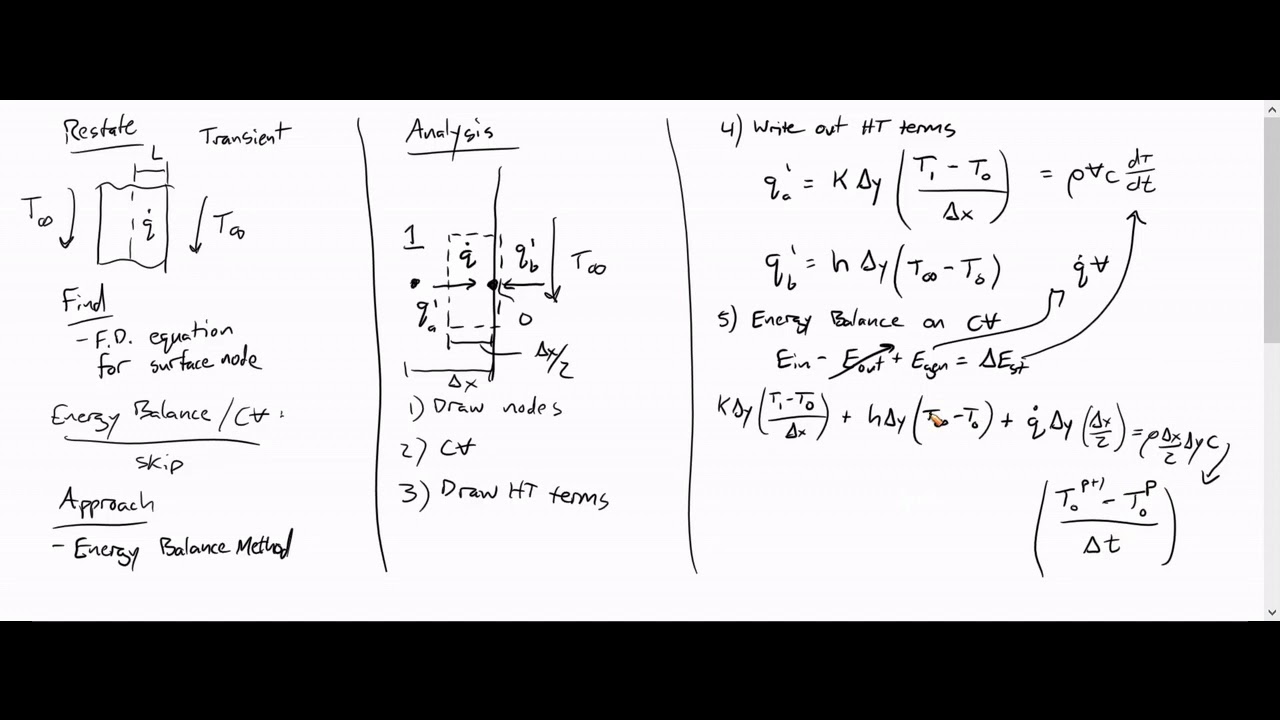 Restate Transient
L
T∞ q̇ T∞
Find
- F.D. equation
for surface node
Energy Balance / C∀ :
skip
Approach
- Energy Balance Method
Analysis
1 q̇ q'b T∞
q'a 0
Δx/2
Δx
1) Draw nodes
2) C∀
3) Draw HT terms
4) Write out HT terms
q'a = KΔy ((T₁ - T₀)/Δx) = ρ∀c dT/dt
q'b = hΔy (T∞ - T₀) q̇∀
5) Energy Balance on C∀
Ein - Eout + Egen = ΔEst
KΔy ((T₁-T₀)/Δx) + hΔy (T∞ - T₀) + q̇ Δy (Δx/2) = ρ Δx/2 Δy c
((T₀^(p+1) - T₀^p)/Δt)